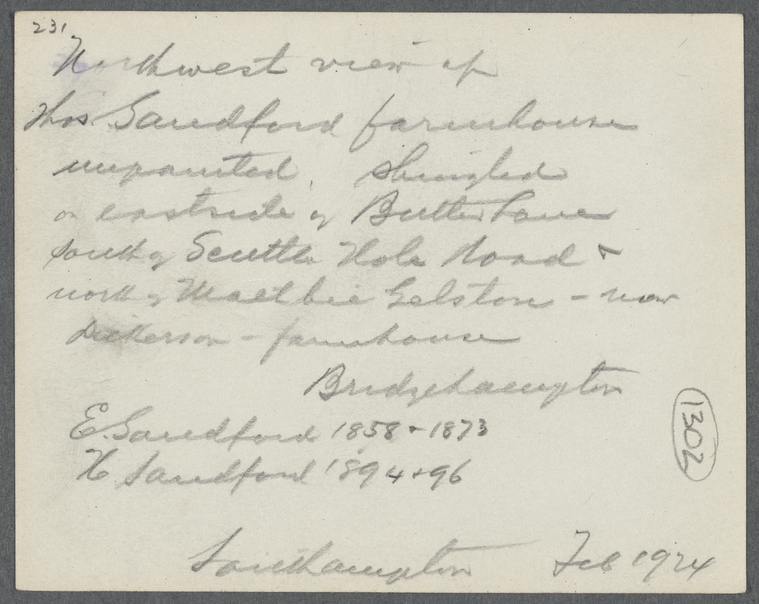 231
Northwest view of
Thos. Sandford farmhouse
unpainted, shingled
on eastside of Butter Lane
south of Scuttle Hole Road &
north of Maltbie Gelston - now
Dickerson - farmhouse
Bridgehampton
E. Sandford 1858 + 1873
H Sandford 1894 + 96
1302
Southampton Feb 1924